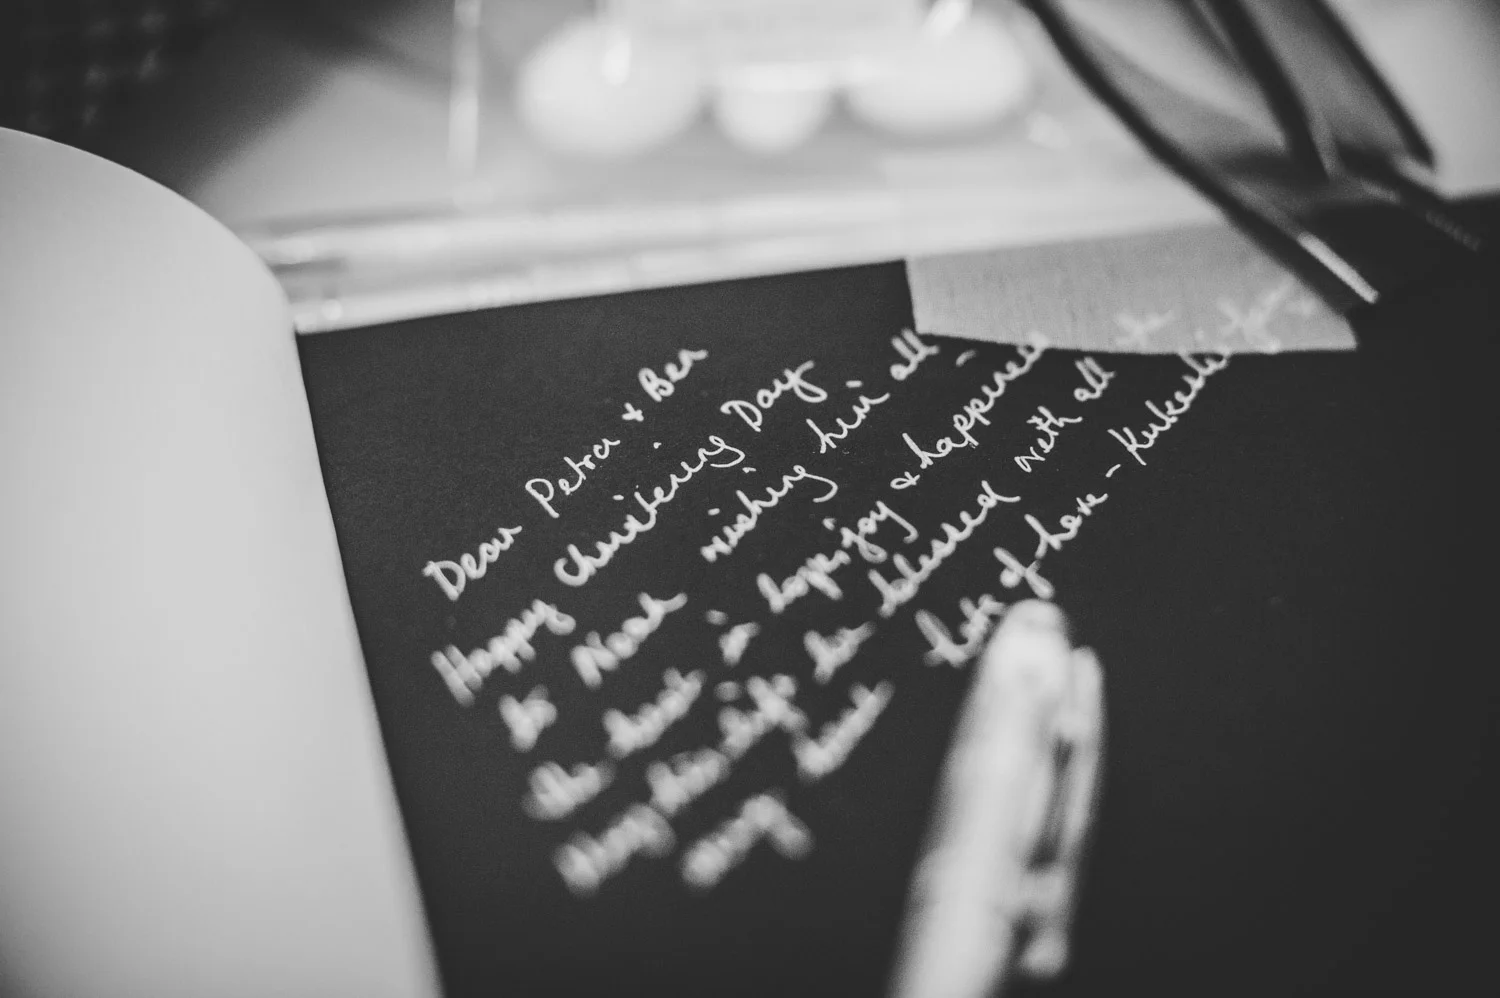 Dear Petra + Ben
Happy Christening Day
to Noah wishing him all
the best in hope, joy & happiness -
May his life be blessed with all
lots of love -